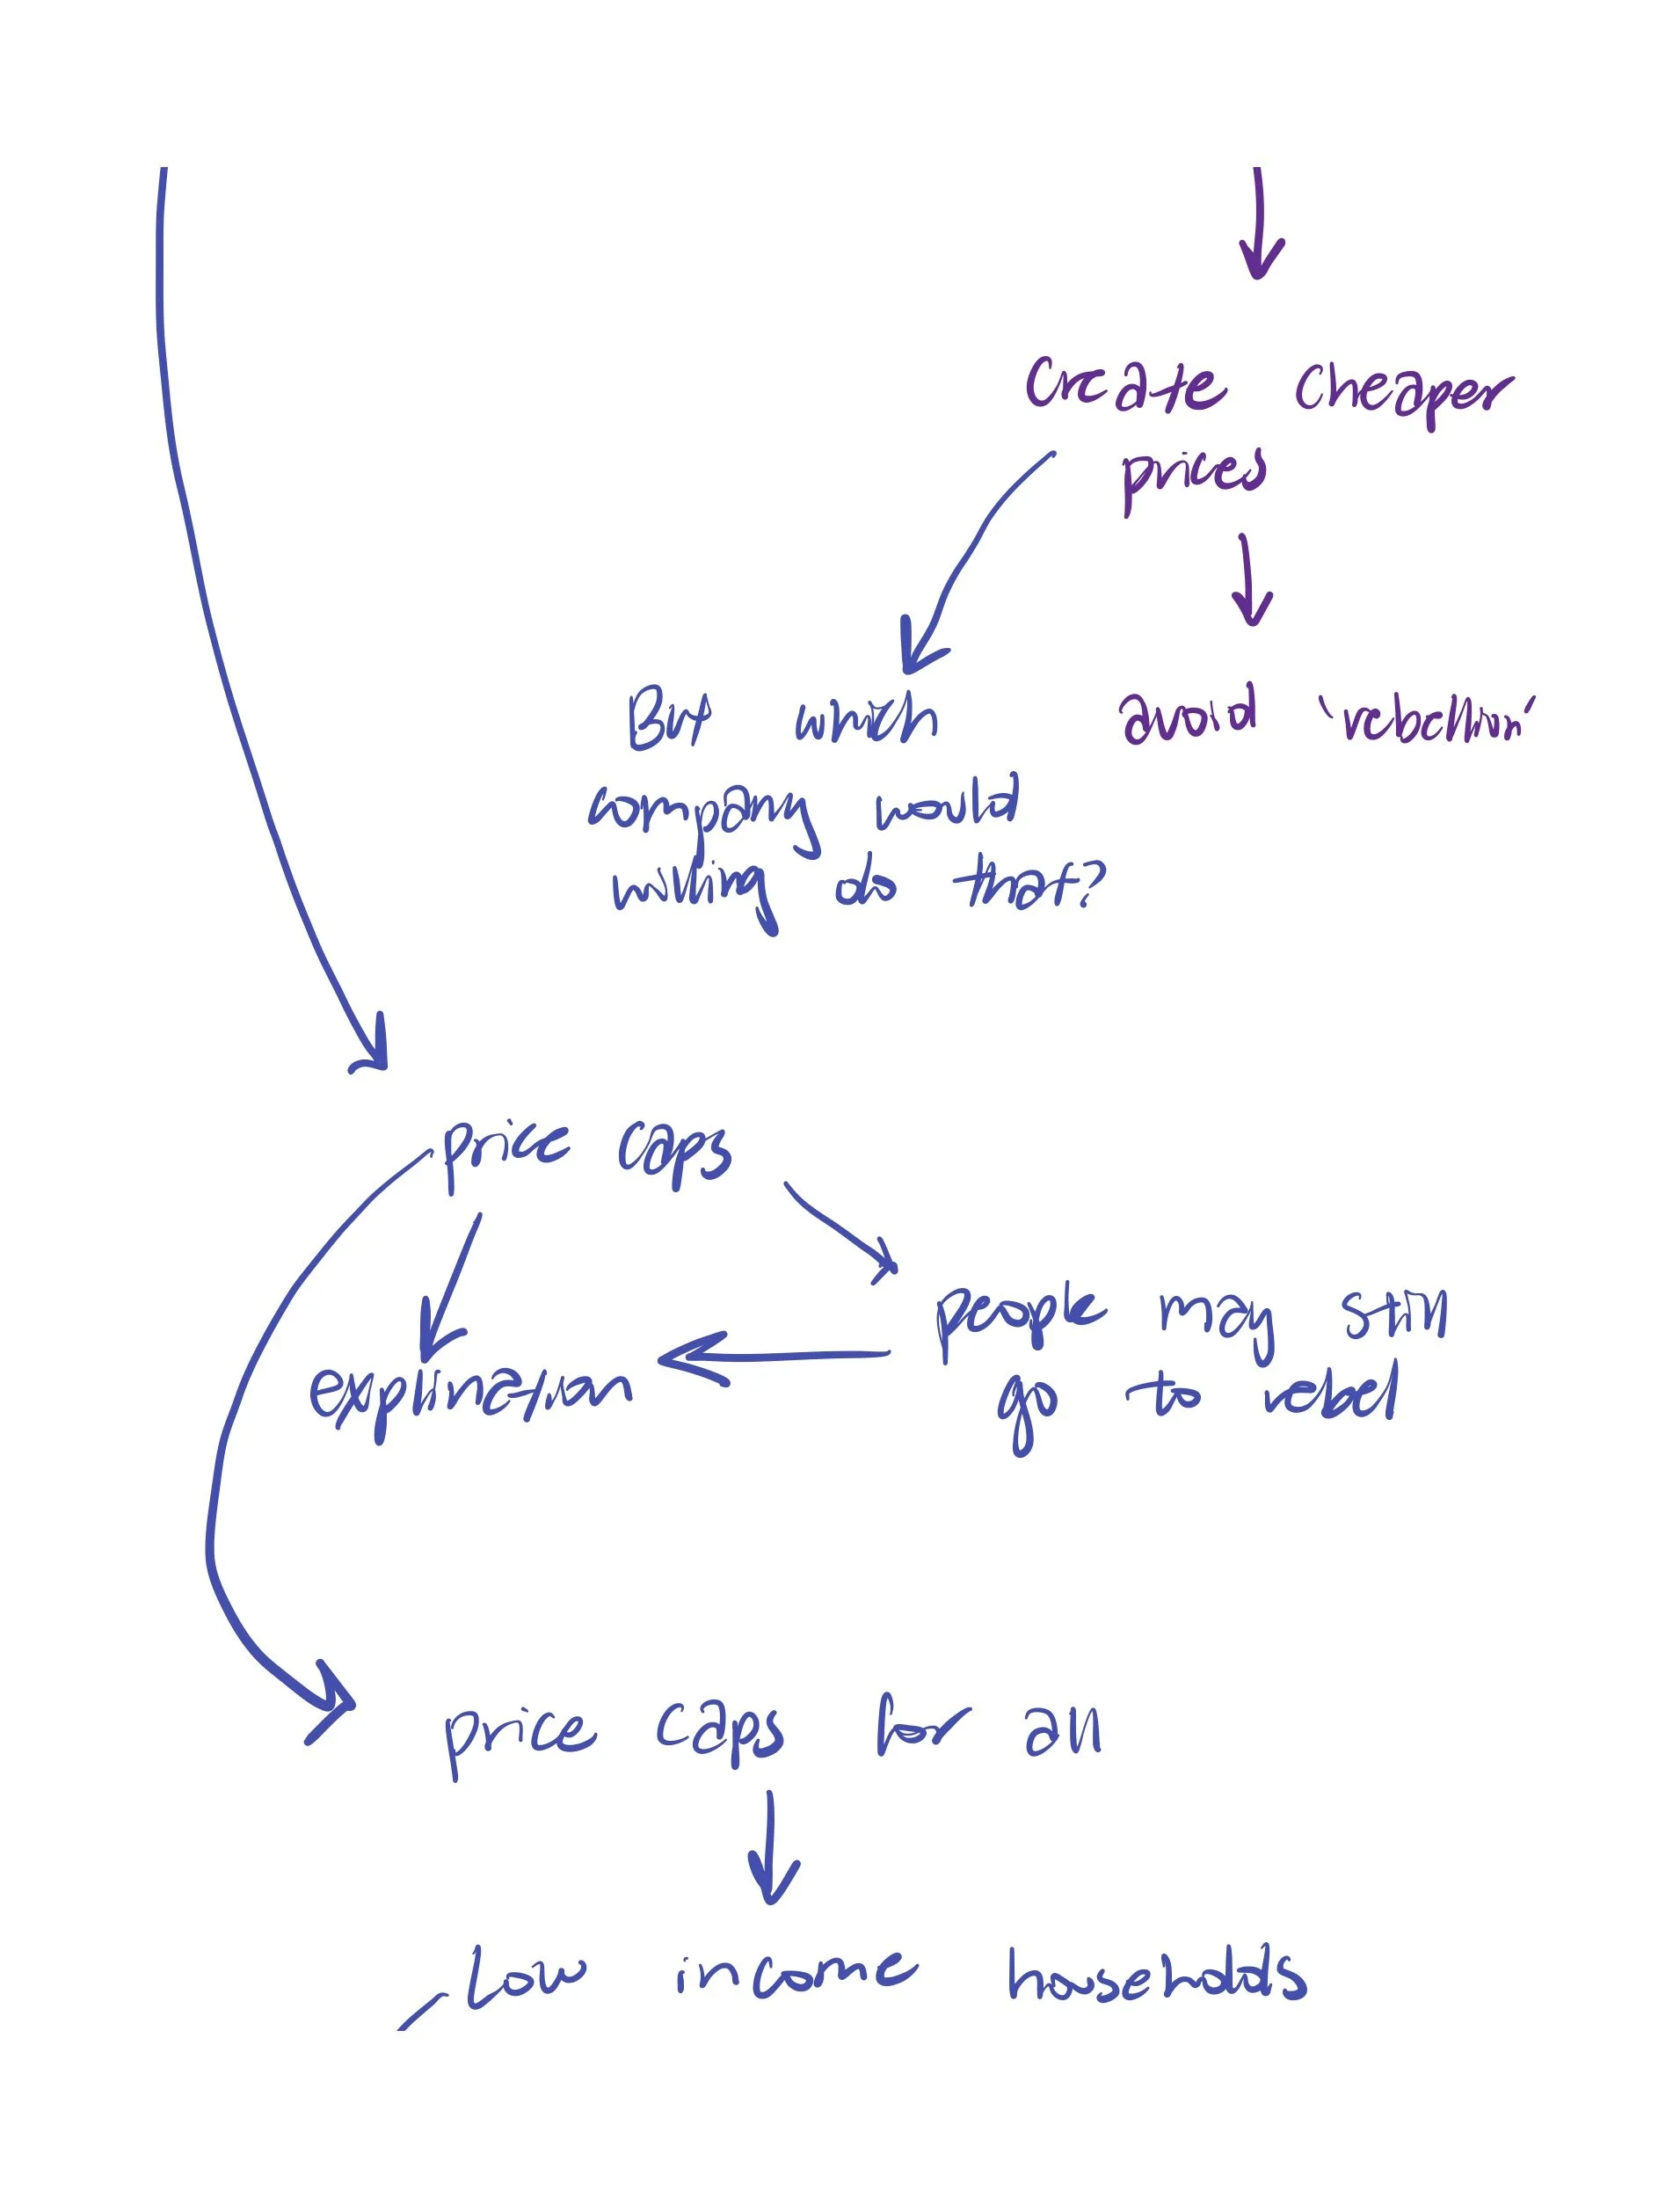 Create cheaper
prices
But which
company would
willing do that?
avoid 'rebellion'
price caps
people may still
go to rebel
explanation
price caps for all
low income households